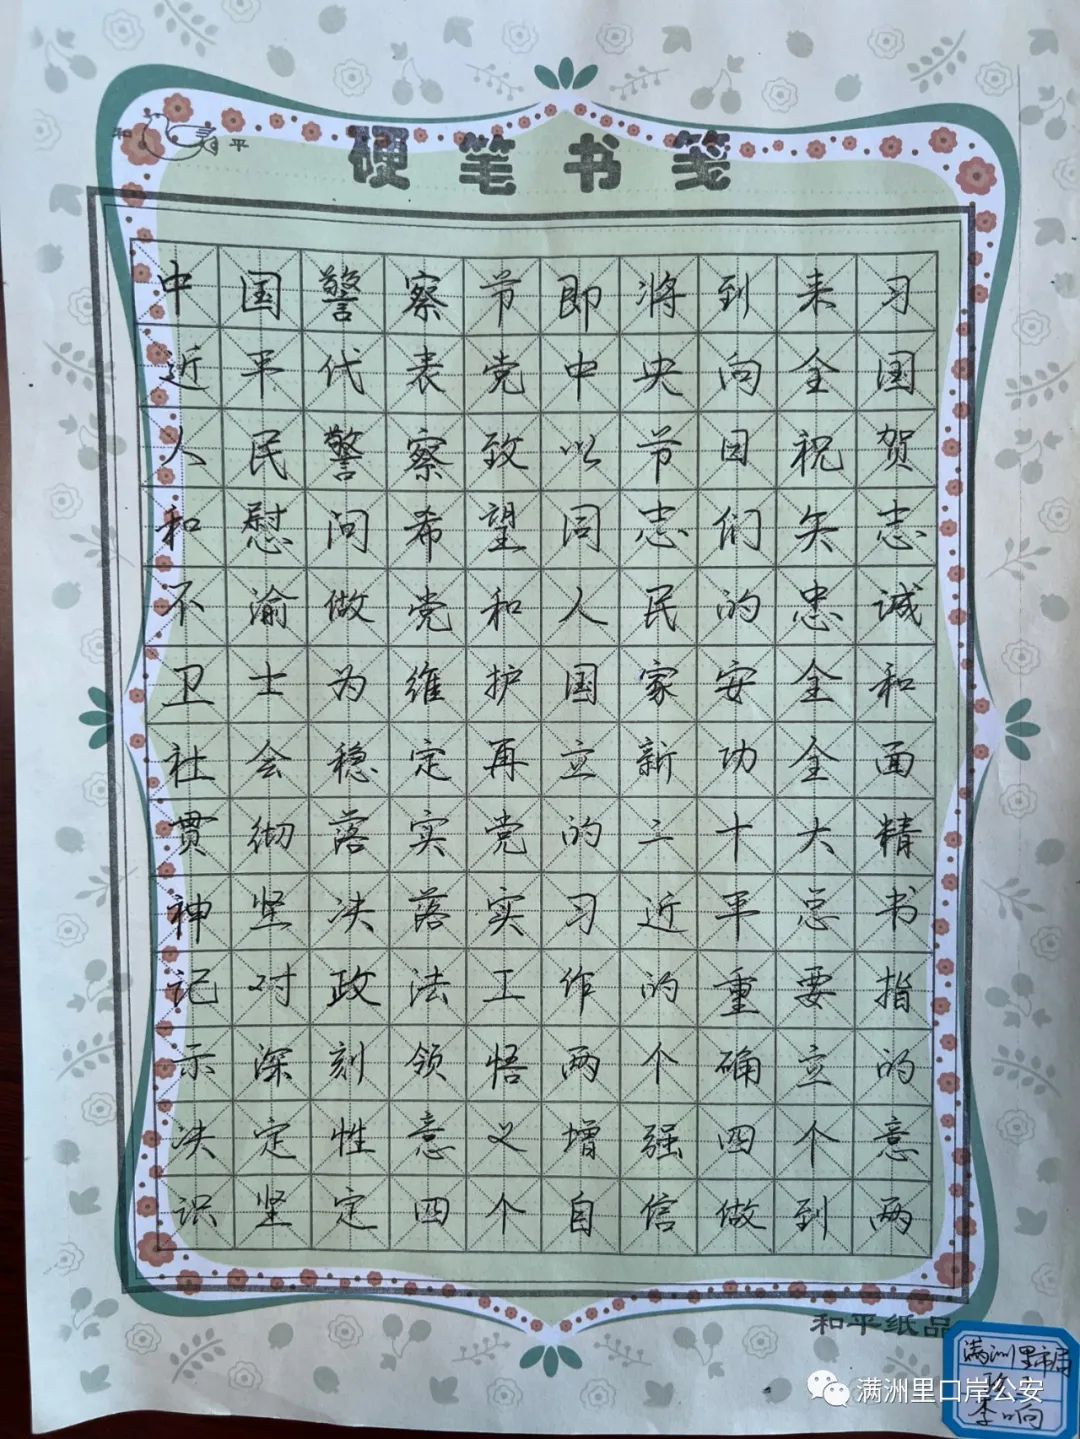 和平
硬笔书笺
中国警察节即将到来习
近平代表党中央向全国
人民警察致以节日祝贺
和慰问希望同志们矢志
不渝做党和人民的忠诚
卫士为维护国家安全和
社会稳定再立新功全面
贯彻落实党的二十大精
神坚决落实习近平总书
记对政法工作的重要指
示深刻领悟两个确立的
决定性意义增强四个意
识坚定四个自信做到两
和平纸品
满洲里市局
李响
满洲里口岸公安